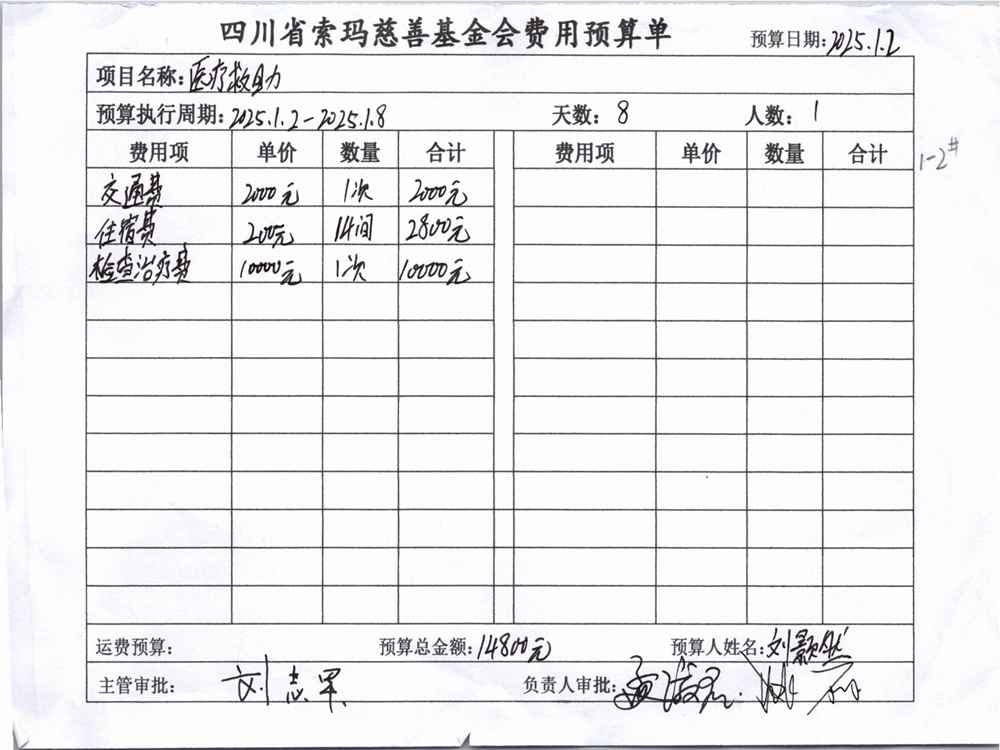 四川省索玛慈善基金会费用预算单
预算日期:2025.1.2
项目名称:医疗救助
预算执行周期:2025.1.2-2025.1.8 天数:8 人数:1
费用项 单价 数量 合计 费用项 单价 数量 合计
1-2#
交通费 2000元 1次 2000元
住宿费 200元 14间 2800元
检查治疗费 10000元 1次 10000元
运费预算: 预算总金额:14800元 预算人姓名:刘颢然
主管审批: 刘志军 负责人审批: